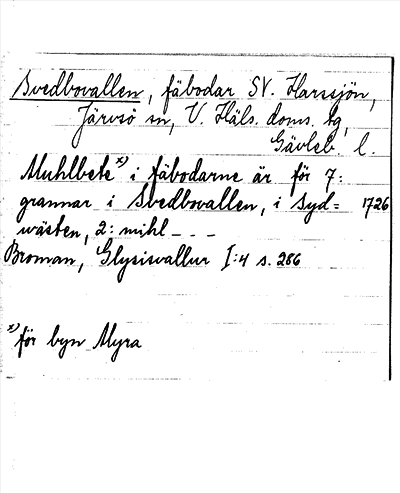 Svedbovallen, fäbodar SV. Harsjön,
Järvsö sn, V. Häls. doms. tg,
Gävleb. l.
Muhlbete x) i fäbodarne är för 7:
grannar i Svedbovallen, i Syd= 1726
wästen, 2: mihl - - -
Broman, Glysisvallur I:4 s. 286
x) för byn Myra